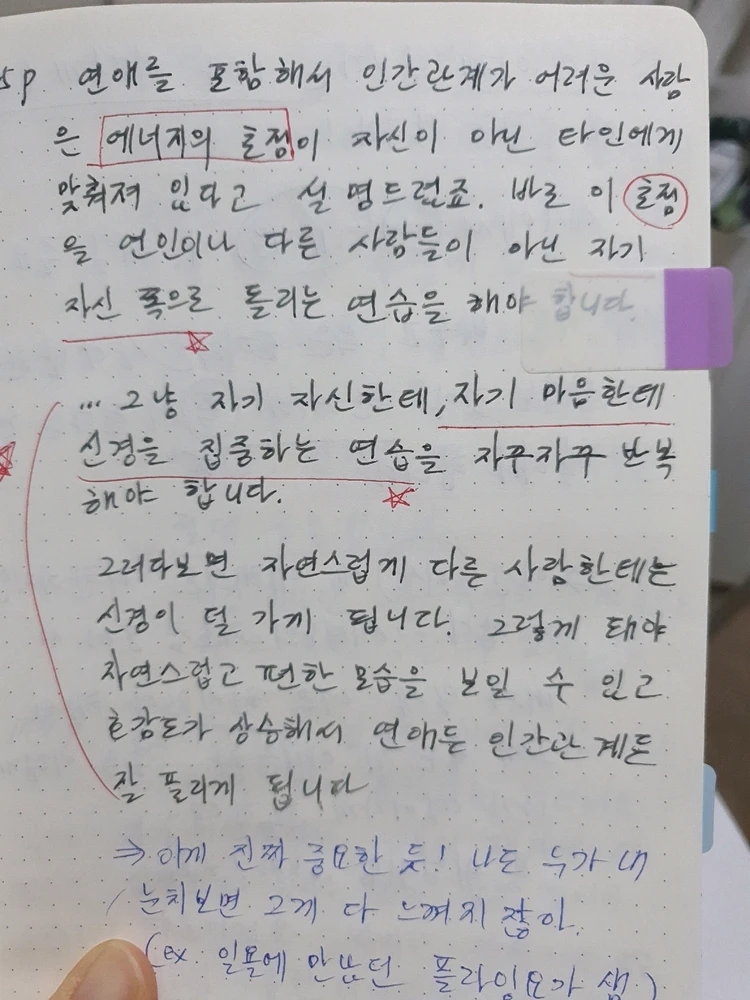 5p 연애를 포함해서 인간관계가 어려운 사람
은 에너지의 초점이 자신이 아닌 타인에게
맞춰져 있다고 설명드렸죠. 바로 이 초점
을 연인이나 다른 사람들이 아닌 자기
자신 쪽으로 돌리는 연습을 해야 합니다.
... 그냥 자기 자신한테, 자기 마음한테
신경을 집중하는 연습을 자꾸자꾸 반복
해야 합니다.
그러다보면 자연스럽게 다른 사람한테는
신경이 덜 가게 됩니다. 그렇게 돼야
자연스럽고 편한 모습을 보일 수 있고
호감도가 상승해서 연애든 인간관계든
잘 풀리게 됩니다
⇒ 이게 진짜 중요한 듯! 나도 누가 내
눈치보면 그게 다 느껴지잖아.
(ex. 일몰에 만났던 플라잉요가 쌤)